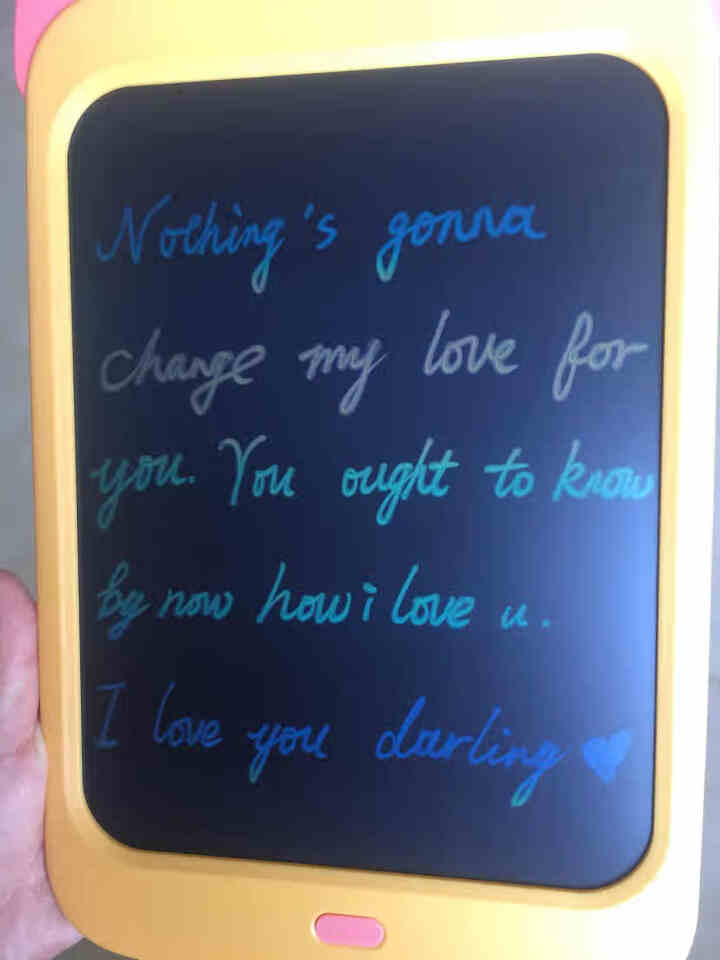 Nothing's gonna
change my love for
you. You ought to know
by now how i love u.
I love you darling ♥